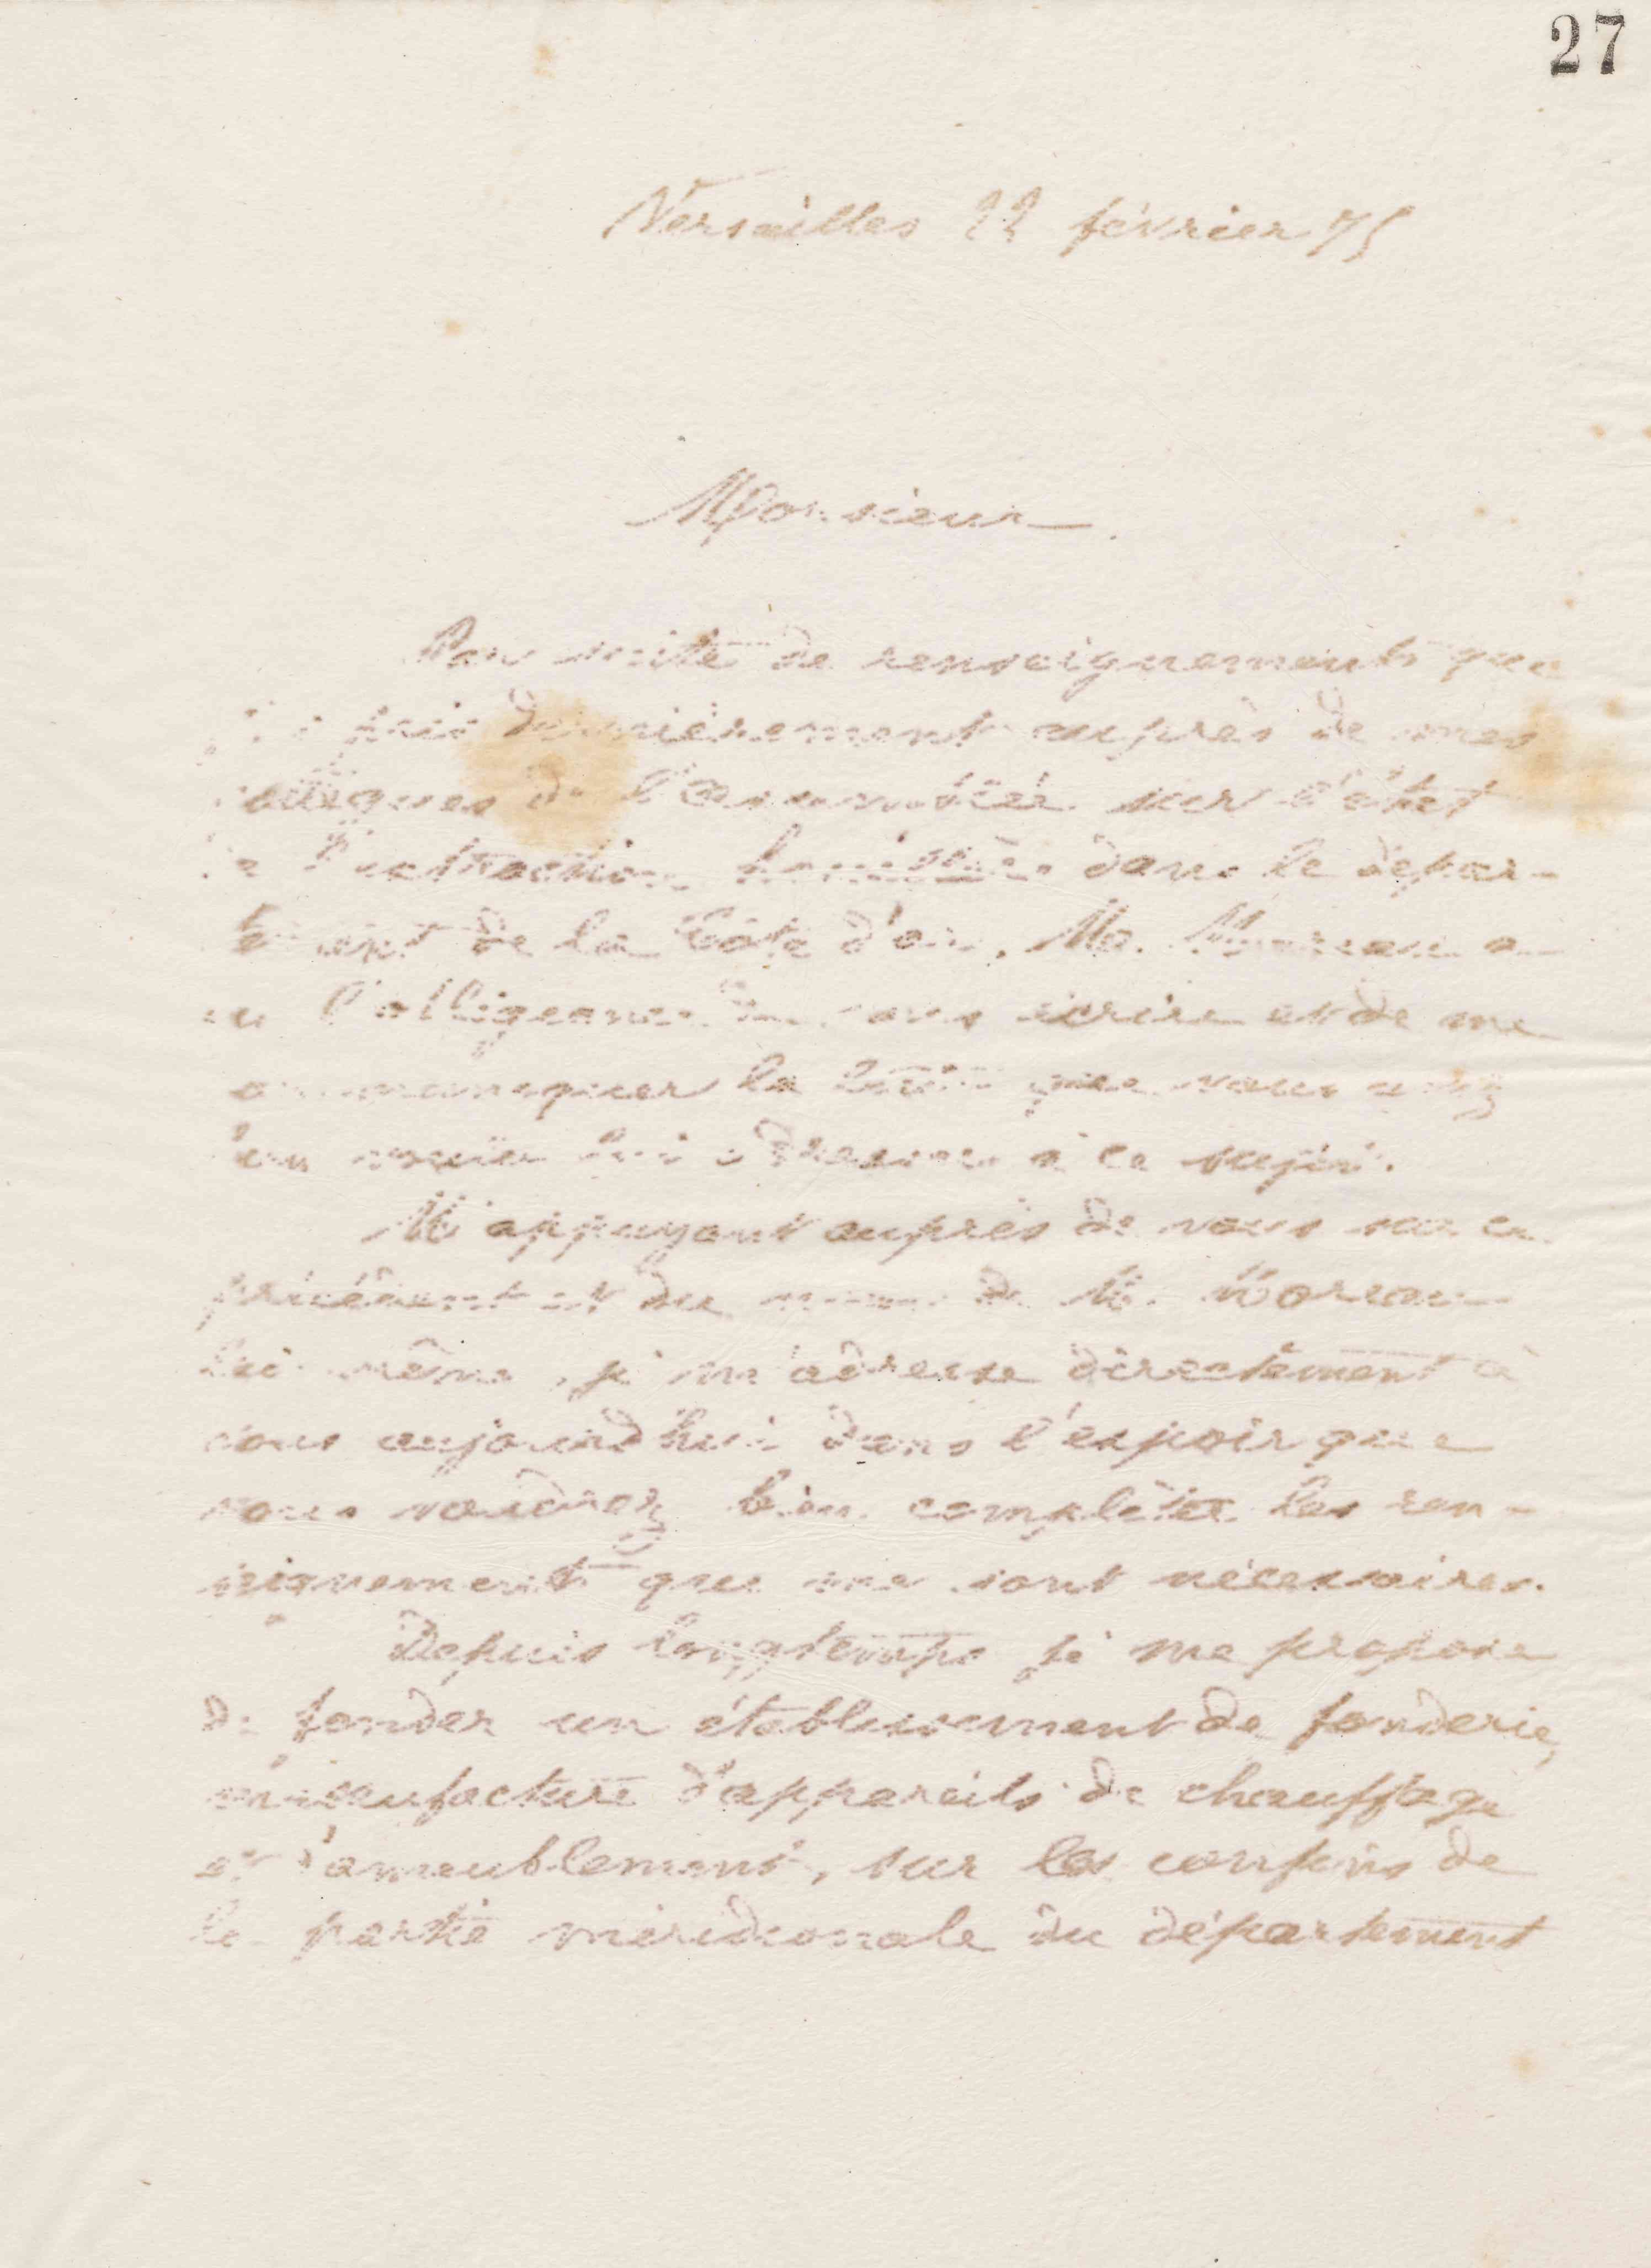 27
Versailles 22 février 75
Monsieur
Par suite de renseignements que
pris dernièrement auprès de mes
collègues de l'Assemblée sur l'état
de l'extraction houillère dans le dépar-
tement de la Côte d'or, Mr. Moreau a
eu l'obligeance de vous écrire et de me
communiquer la lettre que vous avez
bien voulu lui adresser à ce sujet.
M'appuyant auprès de vous sur ce
précédent et du nom de M. Moreau
lui même, je m'adresse directement à
vous aujourd'hui dans l'espoir que
vous voudrez bien compléter les ren-
seignements que me sont nécessaires.
Depuis longtemps je me propose
de fonder un établissement de fonderie,
manufacture d'appareils de chauffage
et d'ameublement, sur les confins de
la partie méridionale du département